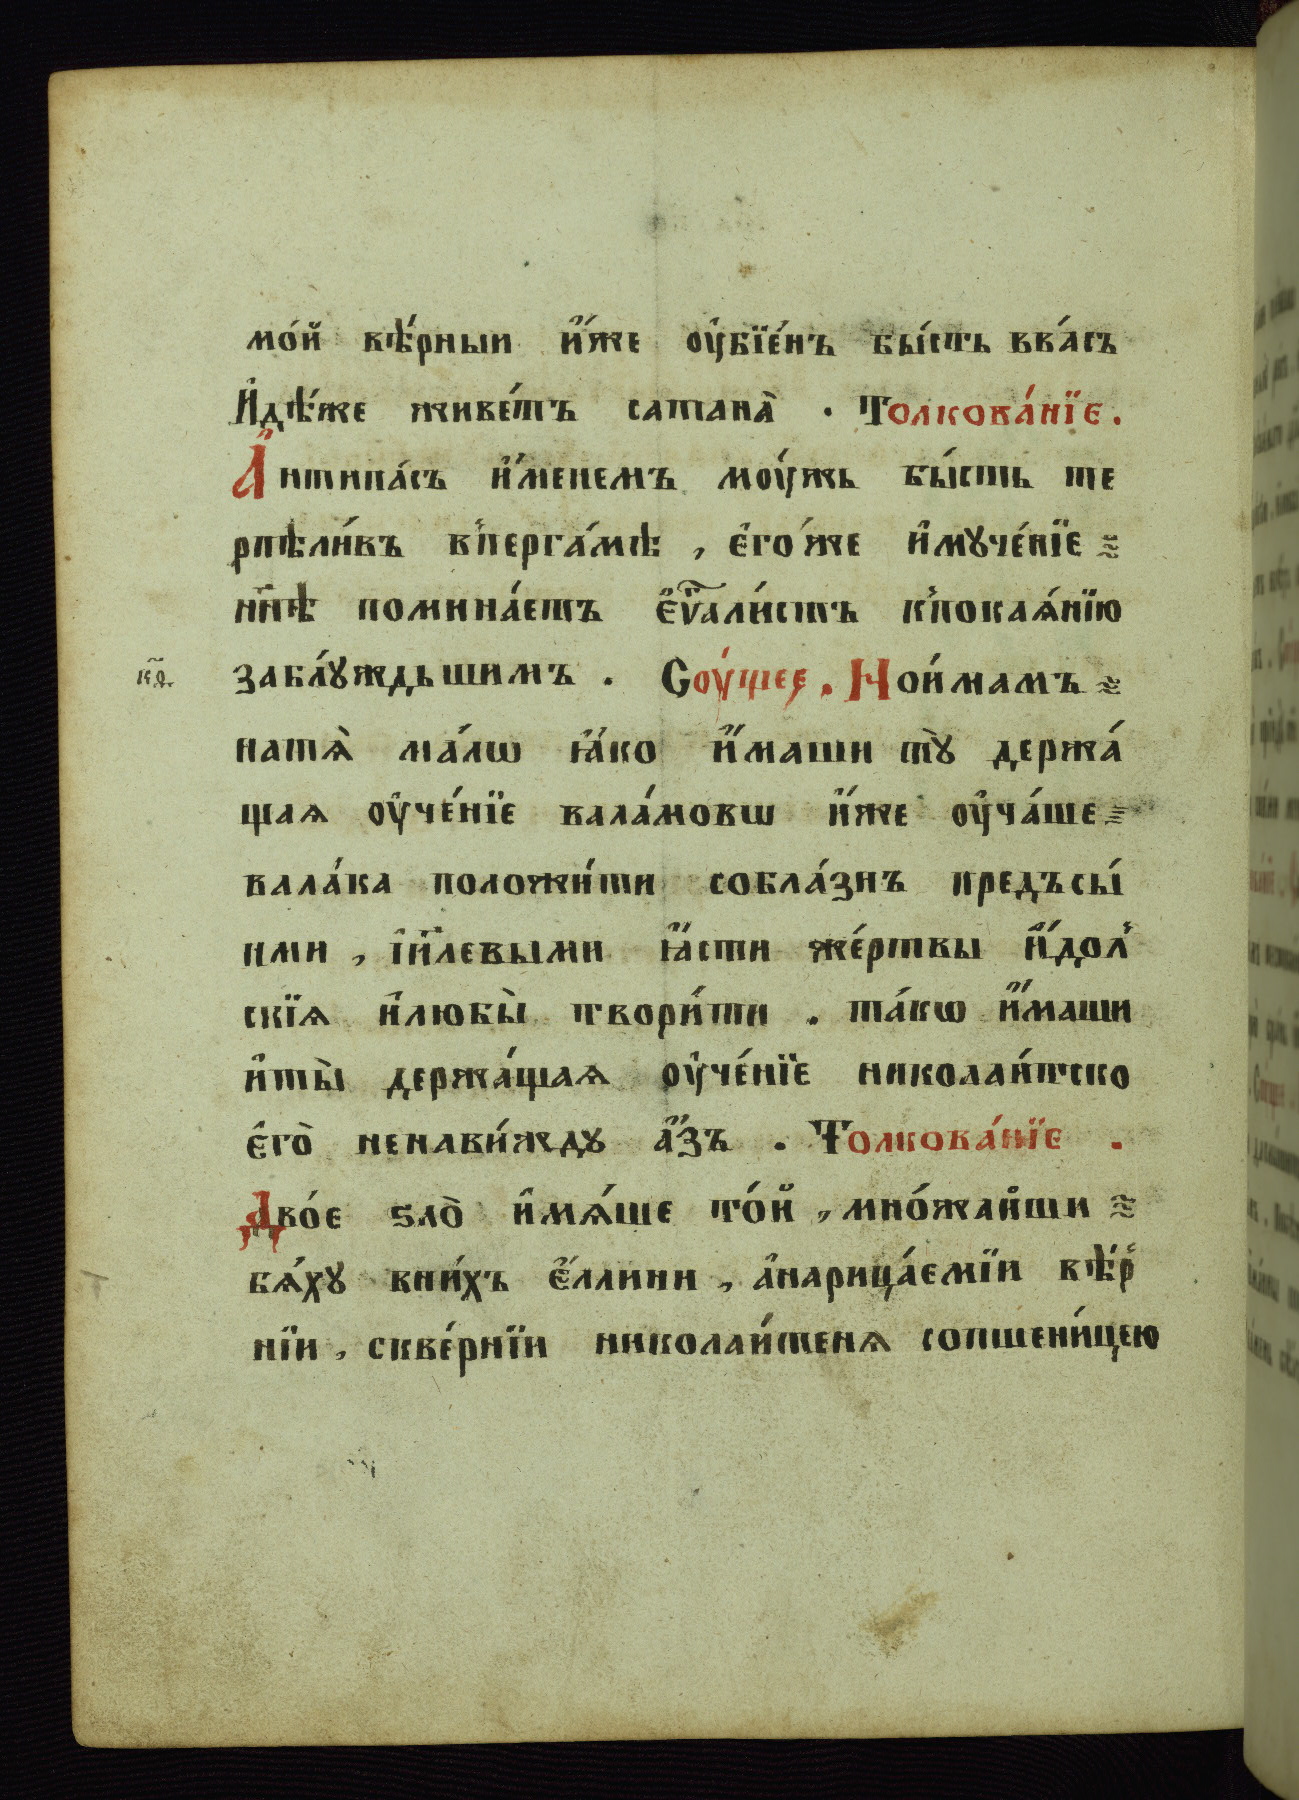 мо́й вѣ́рныи и҆́же ᲂу҆бїе́нъ бы́сть вва́съ
И҆дѣ́же живе́тъ сатана̀ . Толкова́нїе .
А҆́нтипа́съ и҆́менемъ мᲂу́жь бы́сть те
рпѣли́въ в̾перга́мѣ , є҆го́же и҆мꙋче́нїе
нн҃ѣ помина́етъ є҆ѵ҃али́стъ к̾покаѧ́нїю
кд҃. заблꙋ́ждьшимъ . Сᲂу́щее . Нои́мамъ
натѧ̀ ма́лѡ ꙗ҆́ко и҆́маши тꙋ̀ держа́
щаѧ ᲂу҆че́нїе вала́мовѡ и҆́же ᲂу҆ча́ше
вала́ка положи́ти собла́знъ предъсы́
ими , і҆и҃левыми ꙗ҆́сти же́ртвы и҆́дол̾
скїѧ и҆любы̀ твори́ти . та́кѡ и҆́маши
и҆ты̀ держа́щаѧ ᲂу҆че́нїе николаи́тско
є҆го̀ ненави́ждꙋ а҆́зъ . Толкова́нїе .
Дво́е ѕло̀ и҆мѧ́ше то́й , мно́жайши
бѧ́хꙋ вни́хъ є҆́ллини , а҆нарица́емїи вѣ́р
нїи , скве́рнїи николаи́тенѧ сопшени́цею